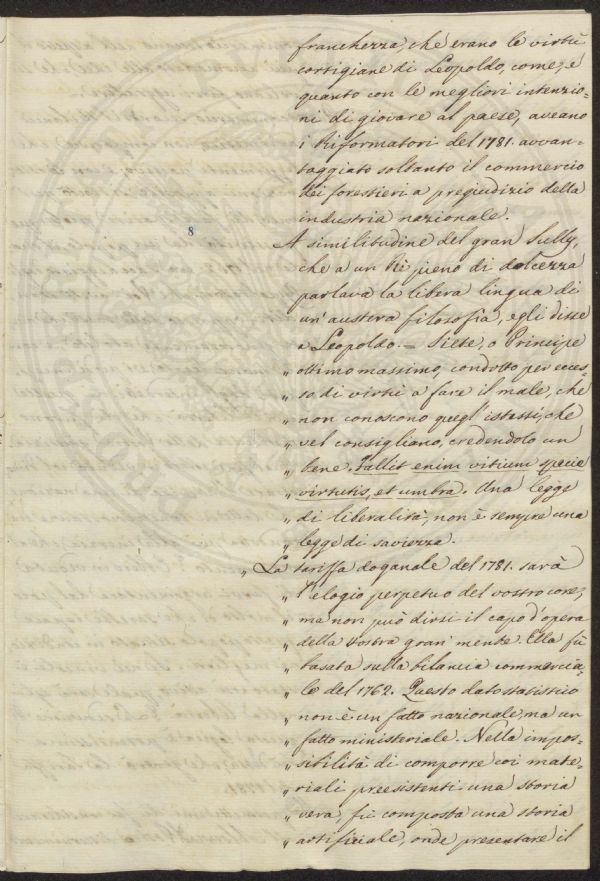 franchezza, che erano le virtù
cortigiane di Leopoldo, come, e
quanto con le megliori intenzio=
ni di giovare al paese, aveano
i Riformatori del 1781. avvan=
taggiato soltanto il commercio
dei forestieri a pregiudizio della
industria nazionale.
8
A similitudine del gran Sully,
che a un Rè pieno di dolcezza
parlava la libera lingua di
un'austera filosofia, egli disse
a Leopoldo. = Siete, o Principe
„ ottimo massimo, condotto per ecces=
„ so di virtù a fare il male, che
„ non conoscono quegl'istessi, che
„ vel consigliano, credendolo un
„ bene. Fallit enim vitium specie
„ virtutis, et umbra. Una legge
„ di liberalità, non è sempre una
„ legge di saviezza.
„ La tariffa doganale del 1781. sarà
„ l'elogio perpetuo del vostro core,
„ ma non può dirsi il capo d'opera
„ della vostra gran' mente. Ella fù
„ basata sulla bilancia commercia=
„ le del 1762. Questo dato statistico
„ non è un fatto nazionale, ma un
„ fatto ministeriale. Nella impos=
„ sibilità di comporre coi mate=
„ riali preesistenti una storia
„ vera, fù composta una storia
„ artificiale, onde presentare il